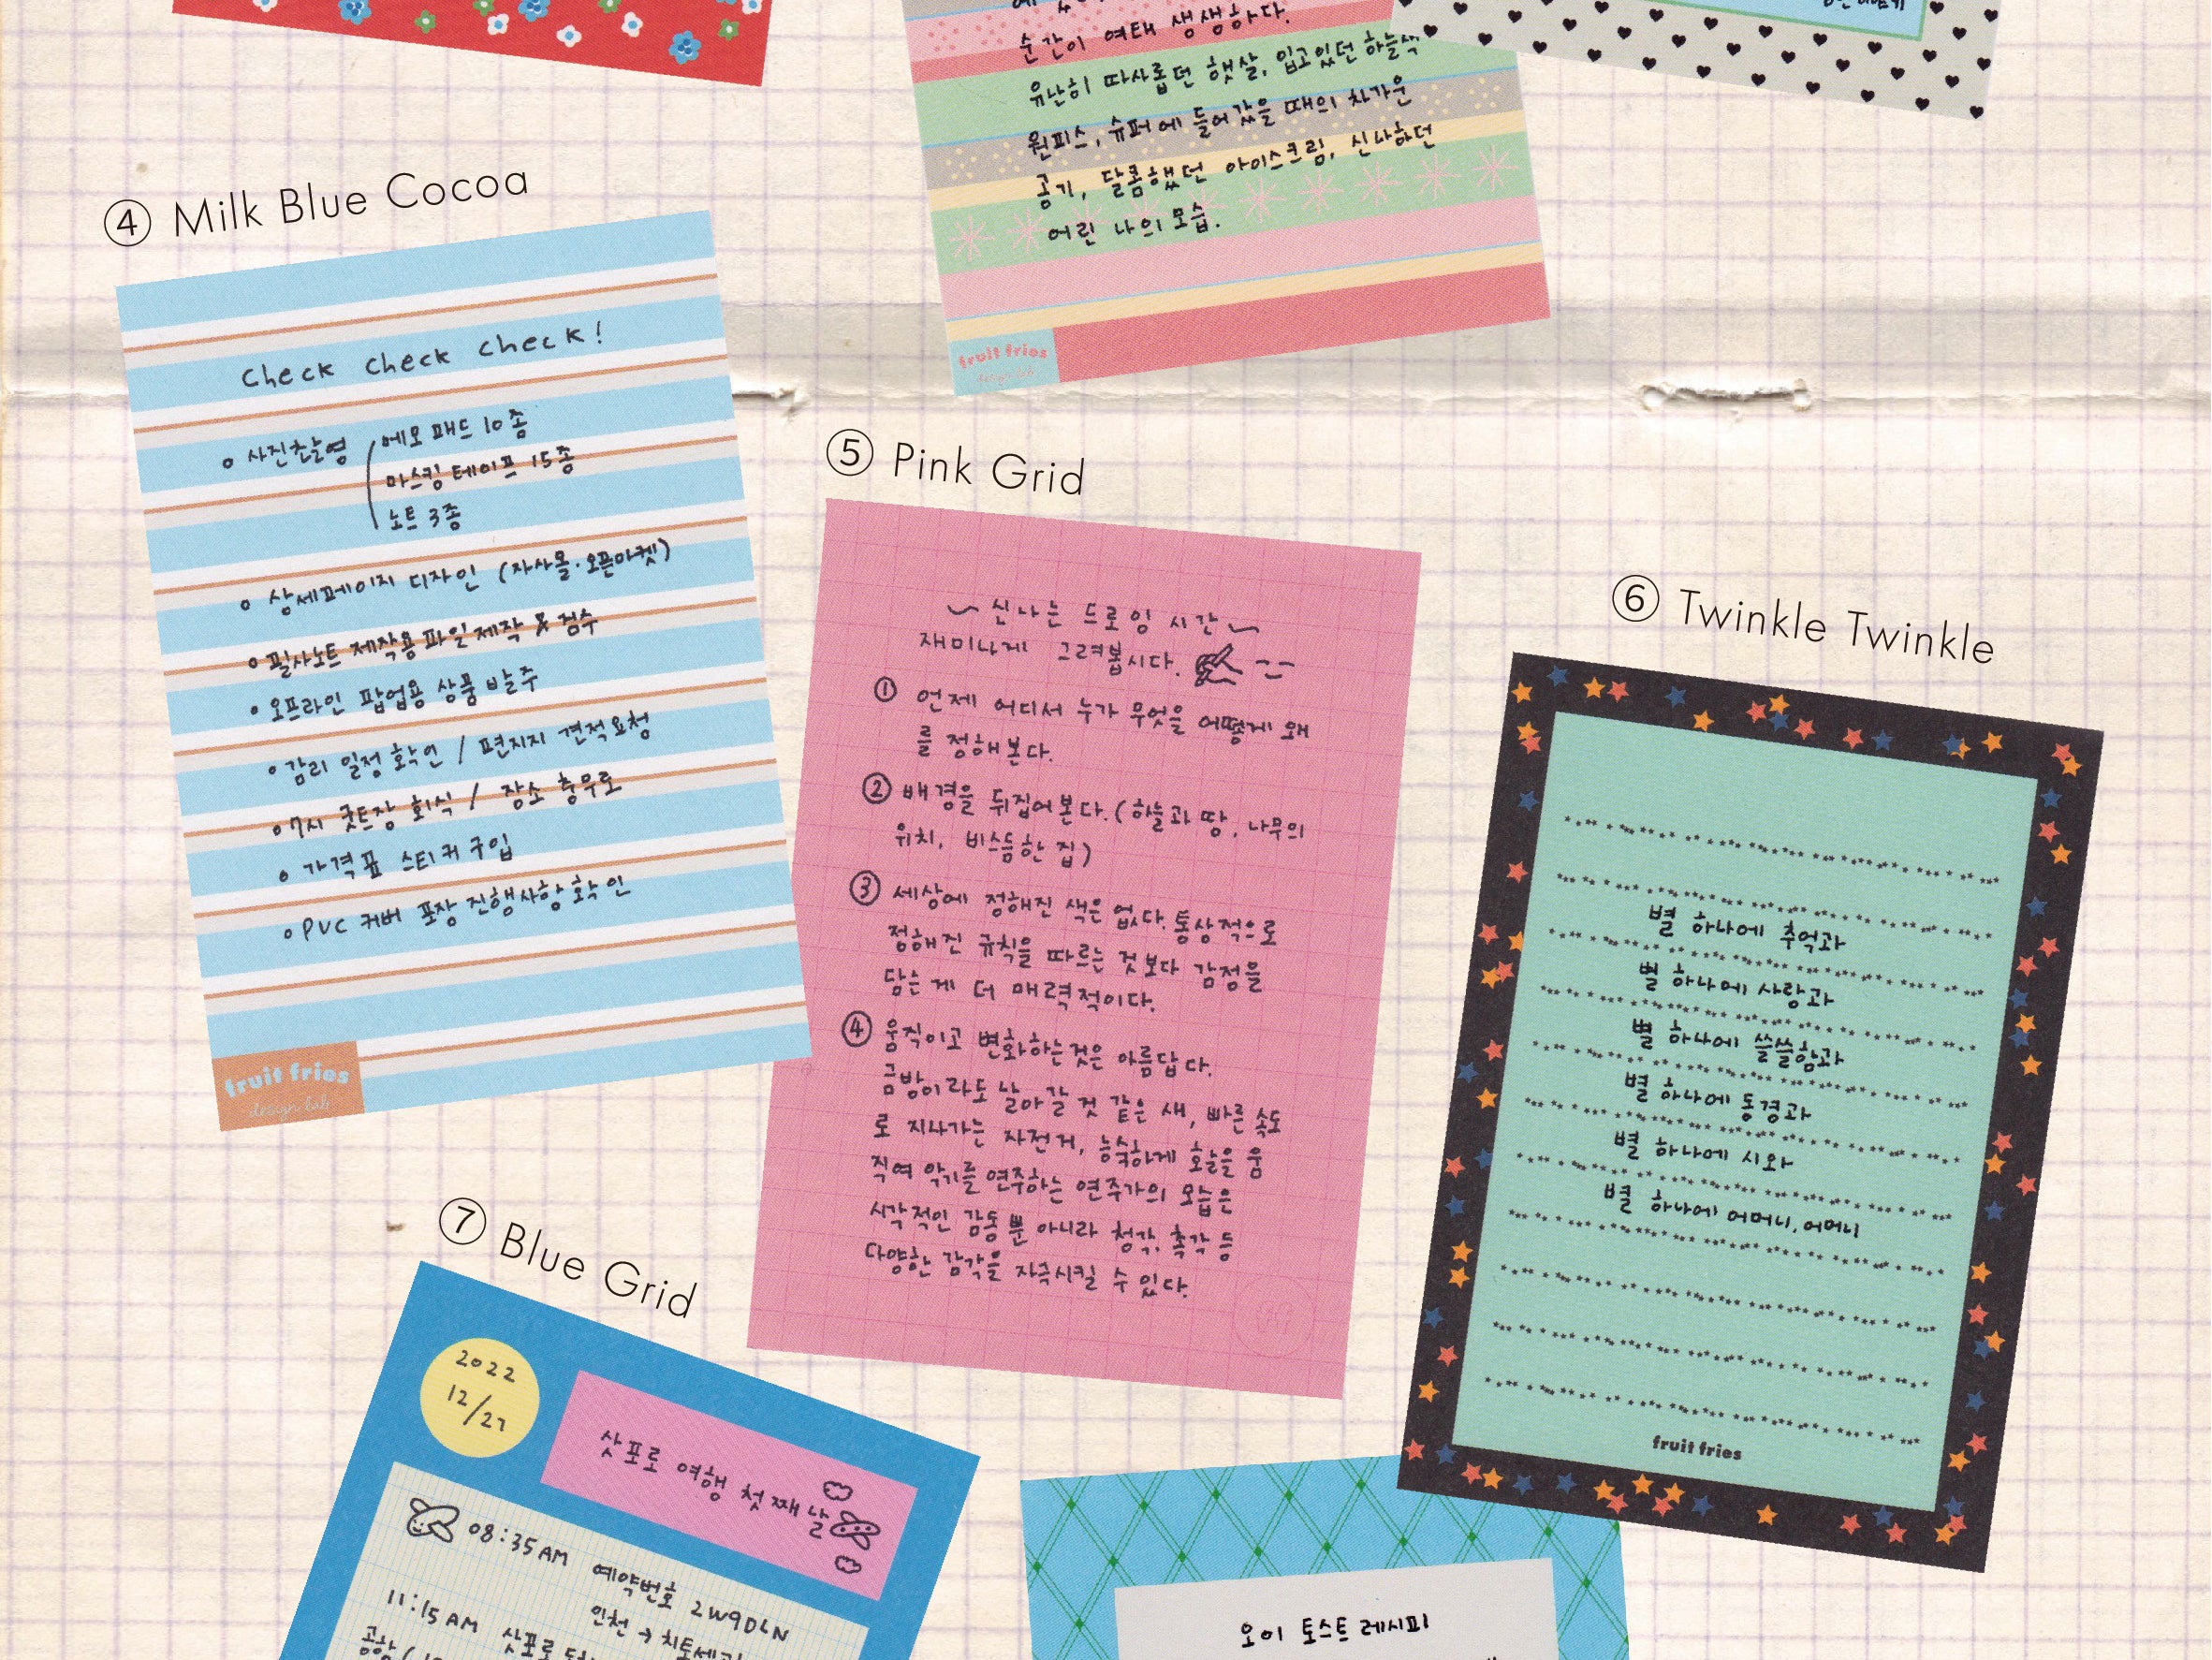 순간이 여태 생생하다.
유난히 따사롭던 햇살, 입고있던 하늘색
원피스, 슈퍼에 들어갔을 때의 차가운
공기, 달콤했던 아이스크림, 신나하던
어린 나의 모습.
fruit fries
design lab
④ Milk Blue Cocoa
Check Check Check!
사진촬영
메모 패드 10종
마스킹 테이프 15종
노트 3종
상세페이지 디자인 (자사몰·오픈마켓)
필사노트 제작용 파일 제작 & 검수
오프라인 팝업용 상품 발주
감리 일정 확인 / 편지지 견적요청
7시 굿트장 회식 / 장소 충무로
가격표 스티커 구입
PVC 커버 포장 진행사항 확인
fruit fries
design lab
⑤ Pink Grid
신나는 드로잉 시간
재미나게 그려봅시다.
① 언제 어디서 누가 무엇을 어떻게 왜
를 정해본다.
② 배경을 뒤집어본다. (하늘과 땅, 나무의
위치, 비스듬한 집)
③ 세상에 정해진 색은 없다. 통상적으로
정해진 규칙을 따르는 것보다 감정을
담는게 더 매력적이다.
④ 움직이고 변화하는것은 아름답다.
금방이라도 날아갈 것 같은 새, 빠른 속도
로 지나가는 자전거, 능숙하게 활을 움
직여 악기를 연주하는 연주가의 모습은
시각적인 감동 뿐 아니라 청각, 촉각 등
다양한 감각을 자극시킬 수 있다.
⑥ Twinkle Twinkle
별 하나에 추억과
별 하나에 사랑과
별 하나에 쓸쓸함과
별 하나에 동경과
별 하나에 시와
별 하나에 어머니, 어머니
fruit fries
⑦ Blue Grid
2022
12/27
삿포로 여행 첫째날
08:35AM 예약번호 2W9DLN
인천 → 치토세
11:15AM 삿포로
공항
오이 토스트 레시피